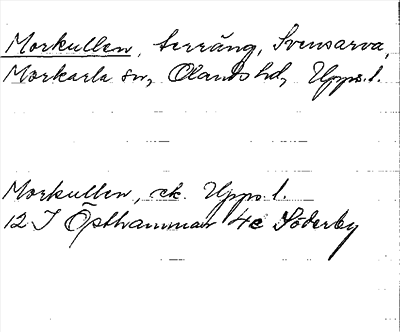 Morkullen, terräng, Svensarva,
Morkarla sn, Olands hd, Upps. l.
Morkullen, ek. Upps. l.
12 I Östhammar 4c Söderby